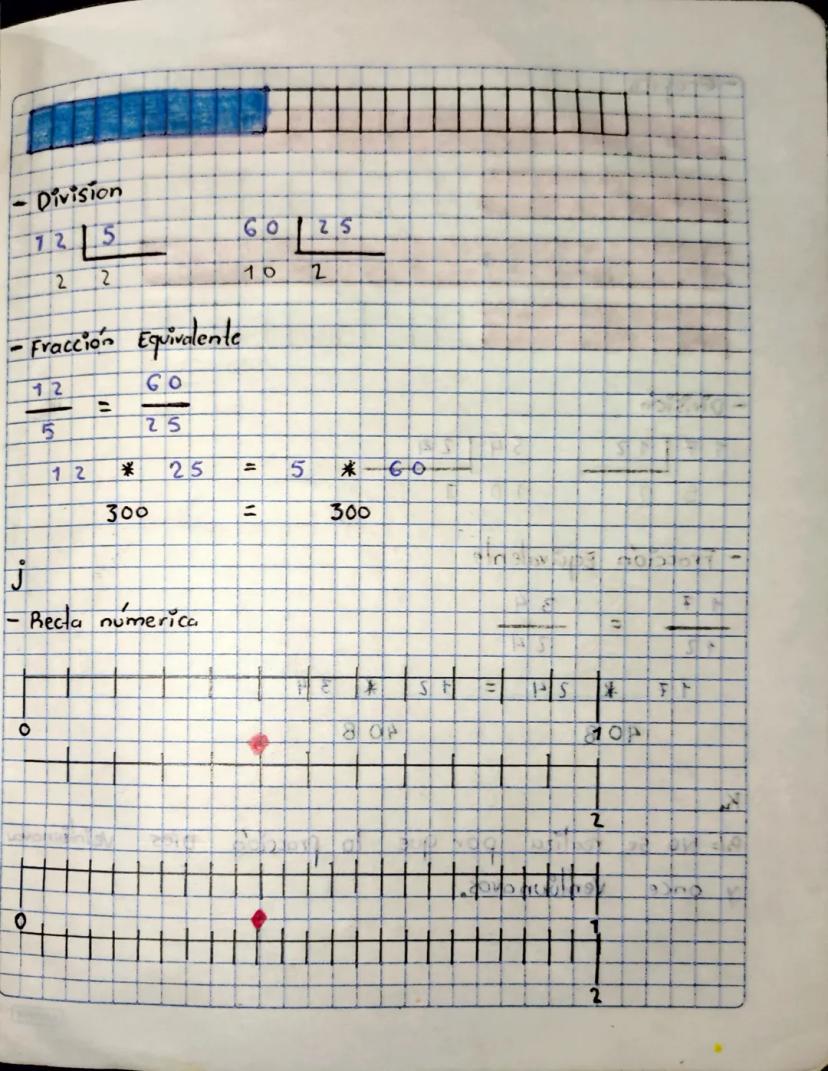 - Division
12 5 60 25
2 2 10 2
- Fracción Equivalente
12 = 60
5 25
12 * 25 = 5 * 60
300 = 300
j
- Recta númerica
0 1
2
0 1
2